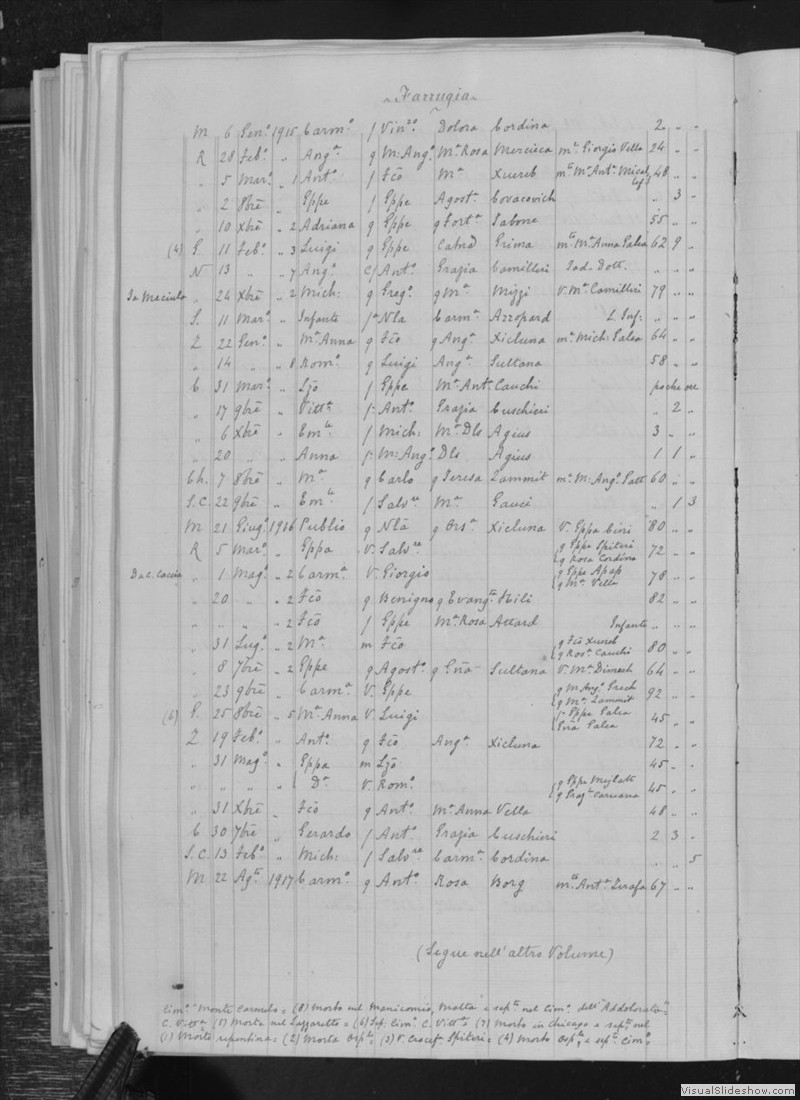 Farrugia
M 6 Gen° 1915 Carm° f Vin^zo Dolora Cordina 2 „ „
R 28 Feb° „ Ang^a g M: Ang° M^a Rosa Mercieca m^a Giorgio Vella 24 „ „
„ 5 Mar° „ 1 Ant° f Fcō M^a Xuereb M^a Ant^a 48 „ „
„ 2 8brē Eppe f Eppe Agost^a Covacovich „ 3 „
„ 10 Xbrē „ 2 Adriana g Eppe g Fort^a Sabone 55 „ „
(4) G. 11 Feb° „ 3 Luigi g Eppe Catnā Grima M^a Anna Galea 62 9 „
N 13 „ „ 7 Ang° C/ Ant° Grazia Camilleri Sad. Dott. „ „ „
Ta Maciuta „ 24 Xbrē „ 2 Mich: g Greg° g M^a Mizzi V. M^a Camilleri 79 „ „
S. 11 Mar° „ Infante f^a Nla Carm^a Azzopard L Inf: „ „
Z 22 Gen° „ M^a Anna g Fcō g Ang^a Xicluna m^a Mich: Galea 64 „ „
„ 14 „ „ 8 Rom° g Luigi Ang^a Sultana 58 „ „
C 31 Mar° „ Ljō f Eppe M^a Ant^a Cauchi poche ore
„ 17 9brē „ Vitt^a f^a Ant° Grazia Cuschieri „ 2 „
„ 6 Xbrē „ Em^le f Mich: M^a Dls Agius 3 „ „
„ 20 „ „ Anna f^a M: Ang° Dls Agius 1 1 „
Ch. 7 8brē „ M^a g Carlo g Teresa Zammit m^a M: Ang° Satt 60 „ „
S.C. 22 9brē „ Em^le f Salv^re M^a Gauci „ 1 3
M 21 Giug° 1916 Publio g Nlā g Ors^a Xicluna V. Eppa Cini 80 „ „
R 5 Mar° „ Eppa V. Salv^re { g Eppe Spiteri g Rosa Cordina 72 „ „
Da C. Caccia „ 1 Mag° „ 2 Carm^a V. Giorgio { g Eppe Apap g M^a Vella 78 „ „
„ 20 „ „ 2 Fcō g Benigno g Evang^ta Stili 82 „ „
„ „ „ „ 2 Fcō f Eppe M^a Rosa Attard Infante „ „ „
„ 31 Lug° „ 2 M^a m Fcō { g Fcō Xuereb g Ros^a Cauchi 80 „ „
„ 8 7brē „ 2 Eppe g Agost° g Gnā Sultana V. M^a Dimech 64 „ „
„ 23 9brē „ Carm^a V. Eppe { g M Ang° Grech g M^a Zammit 92 „ „
(6) G. 25 8brē „ 5 M^a Anna V. Luigi Eppe Galea Gnā Galea 45 „ „
Z 19 Feb° „ Ant° g Fcō Ang^a Xicluna 72 „ „
„ 31 Mag° „ Eppa m Ljō 45 „ „
„ „ „ „ D^a V. Rom° { g Eppe Mejlatt g Graz^a Caruana 45 „ „
„ 31 Xbrē „ Fcō g Ant° M^a Anna Vella 48 „ „
C 30 7brē „ Gerardo f Ant° Grazia Cuschieri 2 3 „
S.C. 13 Feb° „ Mich: f Salv^re Carm^a Cordina „ „ 5
M 22 Ag^to 1917 Carm° g Ant° Rosa Borg Ant^a Zerafa 67 „ „
(Segue nell' altro Volume)
Cim° Monte Carmelo = (8) Morto nel Manicomio, Malta e sep^to nel Cim° dell' Addolorata =
C. Vitt^a (5) Morta nel Lazzaretto = (6) Sep. Cim° C. Vitt^a = (7) Morto in Chicago e sep^to nel
(1) Morto repentina = (2) Morta Osp^le = (3) V. Crocef^a Spiteri = (4) Morto Osp^le e sep^to Cim°
VisualSlideshow.com